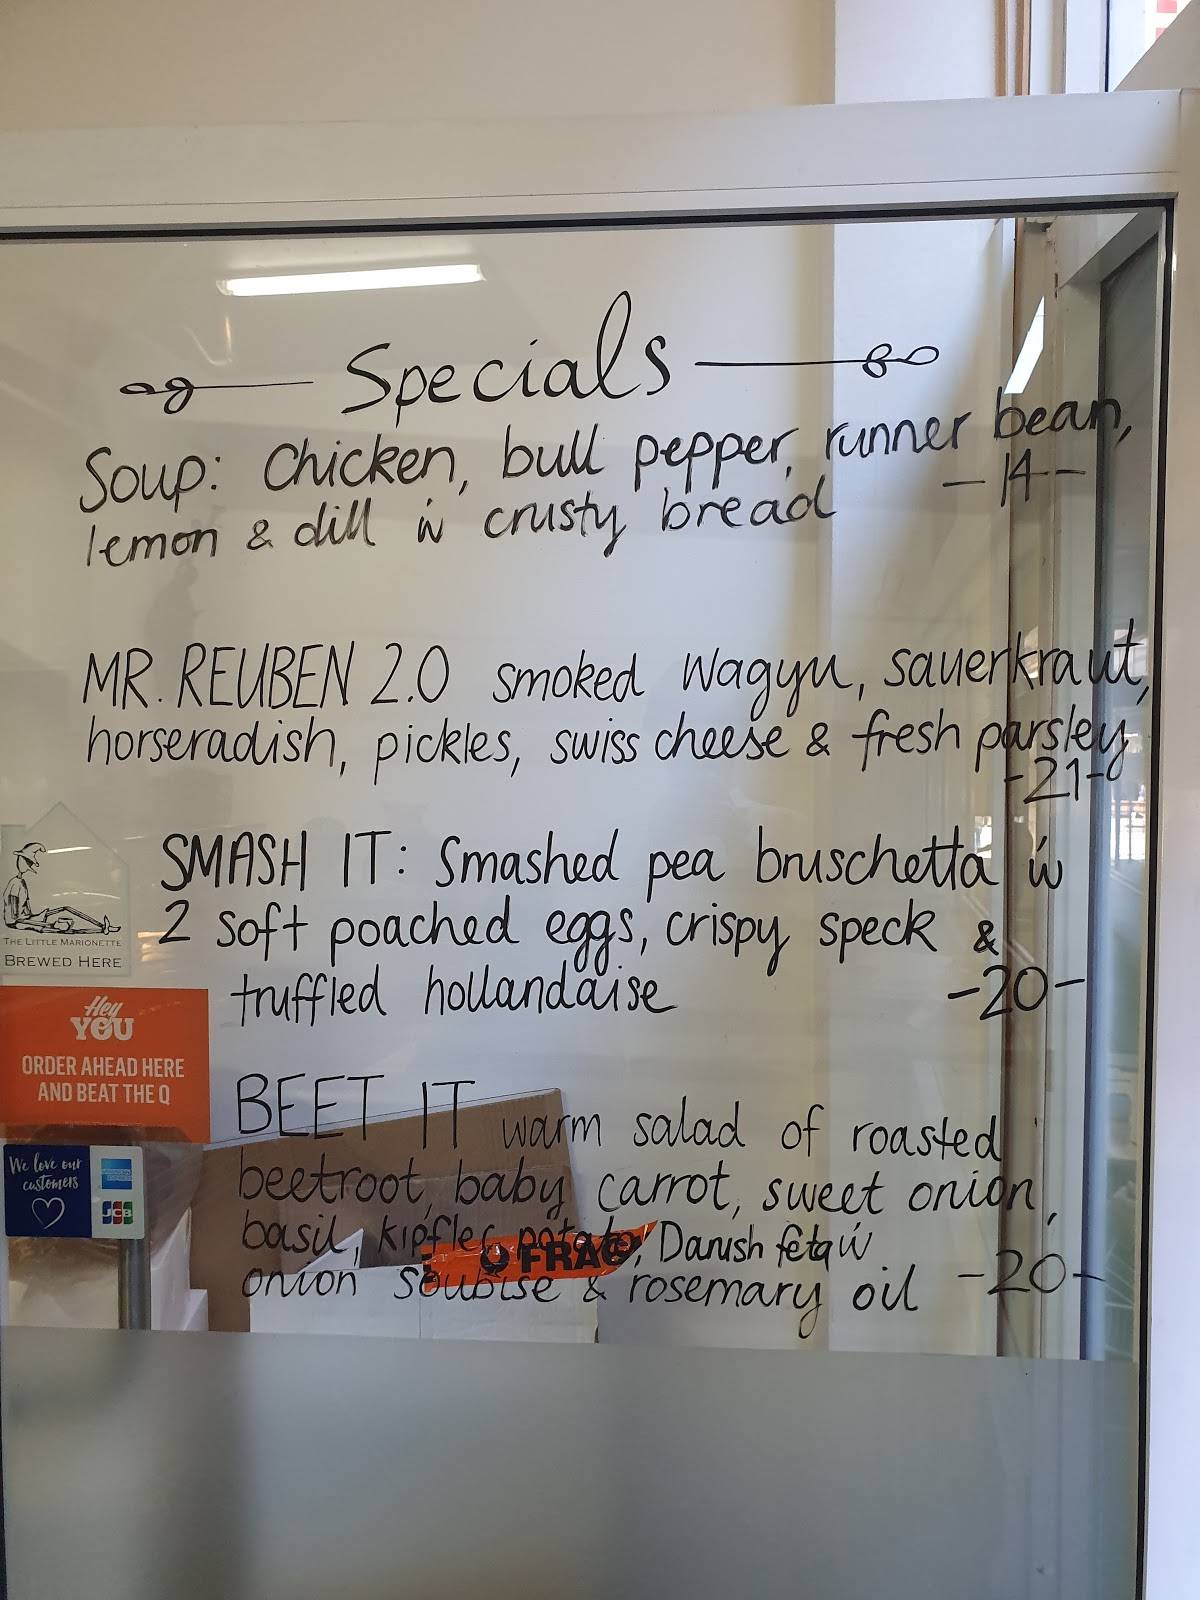 Specials
Soup: Chicken, bull pepper, runner bean,
lemon & dill w crusty bread -14-
MR. REUBEN 2.0 smoked wagyu, sauerkraut,
horseradish, pickles, swiss cheese & fresh parsley
-21-
SMASH IT: Smashed pea bruschetta w
2 soft poached eggs, crispy speck &
truffled hollandaise -20-
BEET IT warm salad of roasted
beetroot, baby carrot, sweet onion,
basil, kipfler potato, Danish feta w
onion soubise & rosemary oil -20-
THE LITTLE MARIONETTE
BREWED HERE
Hey
YOU
ORDER AHEAD HERE
AND BEAT THE Q
We love our
customers
AMERICAN EXPRESS
JCB